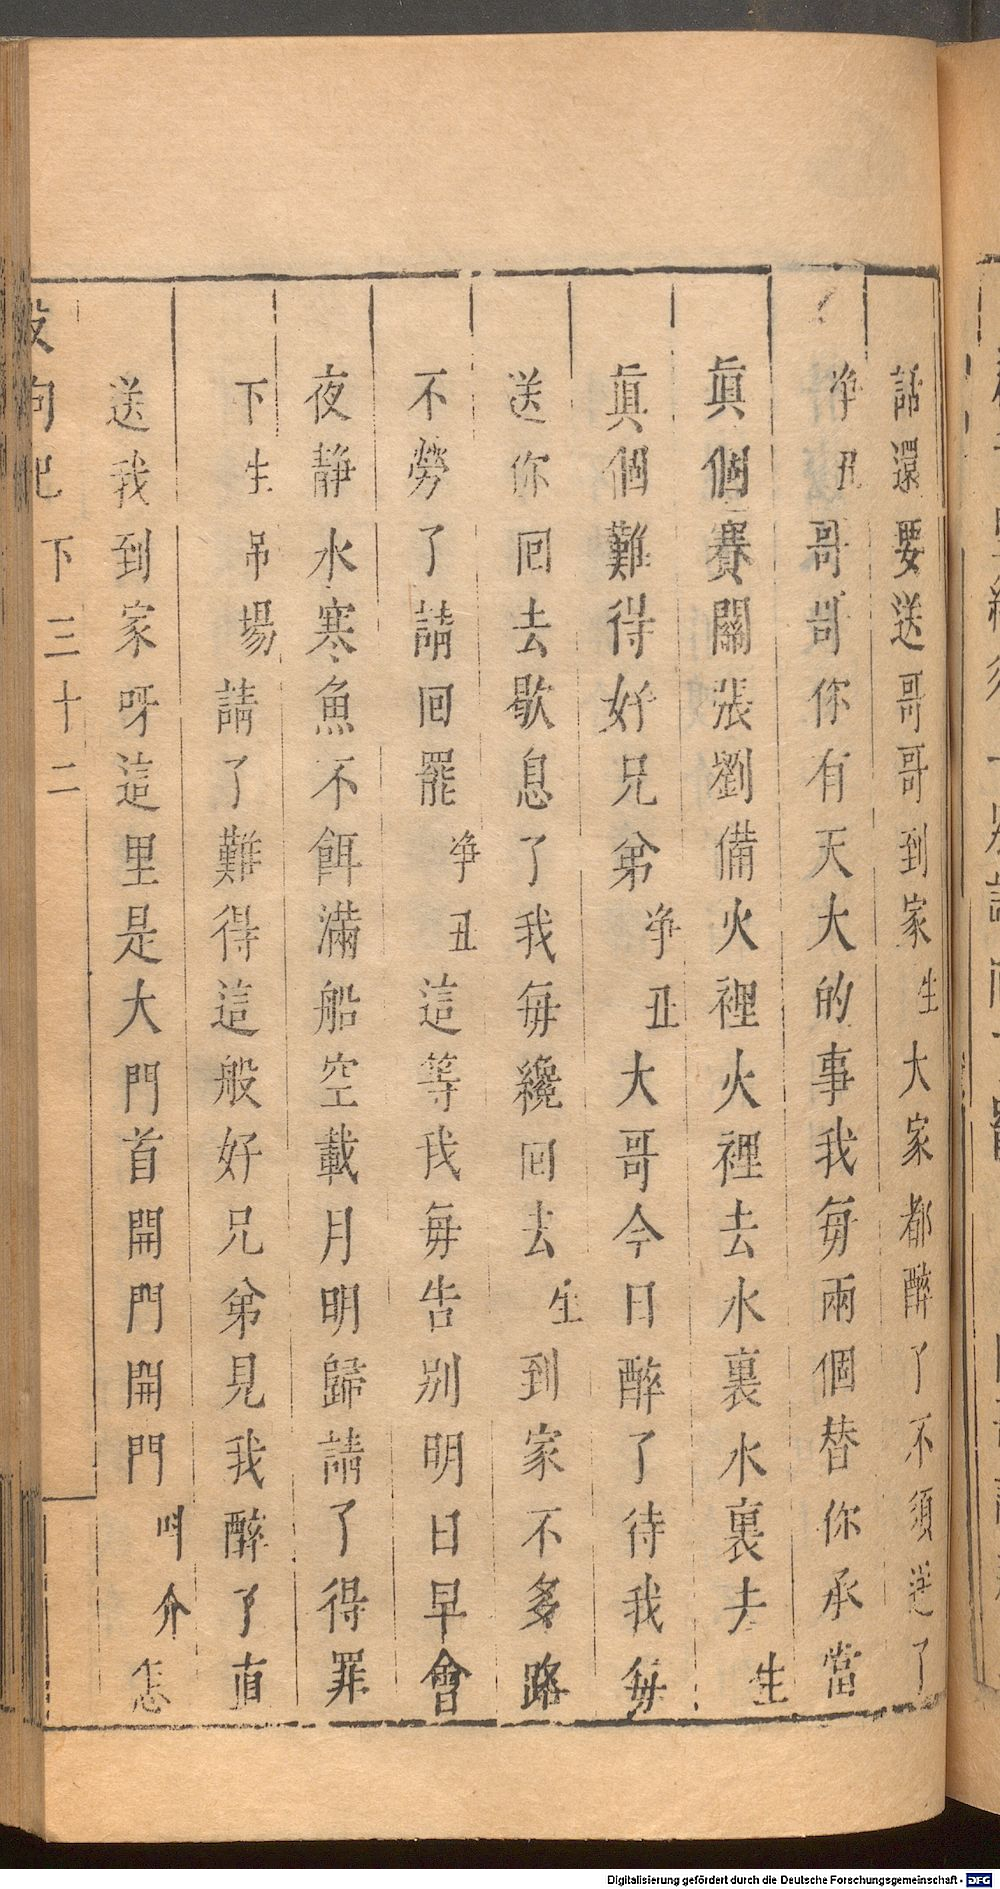 話還要送哥哥到家生大家都醉了不須送了
净丑哥哥你有天大的事我每兩個替你承當
眞個賽關張劉備火裡火裡去水裏水裏去生
眞個難得好兄弟净丑大哥今日醉了待我每
送你回去歇息了我每纔回去生到家不多路
不勞了請回罷净丑這等我每告别明日早會
夜静水寒魚不餌滿船空載月明歸請了得罪
下生吊場請了難得這般好兄弟見我醉了直
送我到家呀這里是大門首開門開門叫介怎
殺狗記 下 三十二
Digitalisierung gefördert durch die Deutsche Forschungsgemeinschaft - DFG